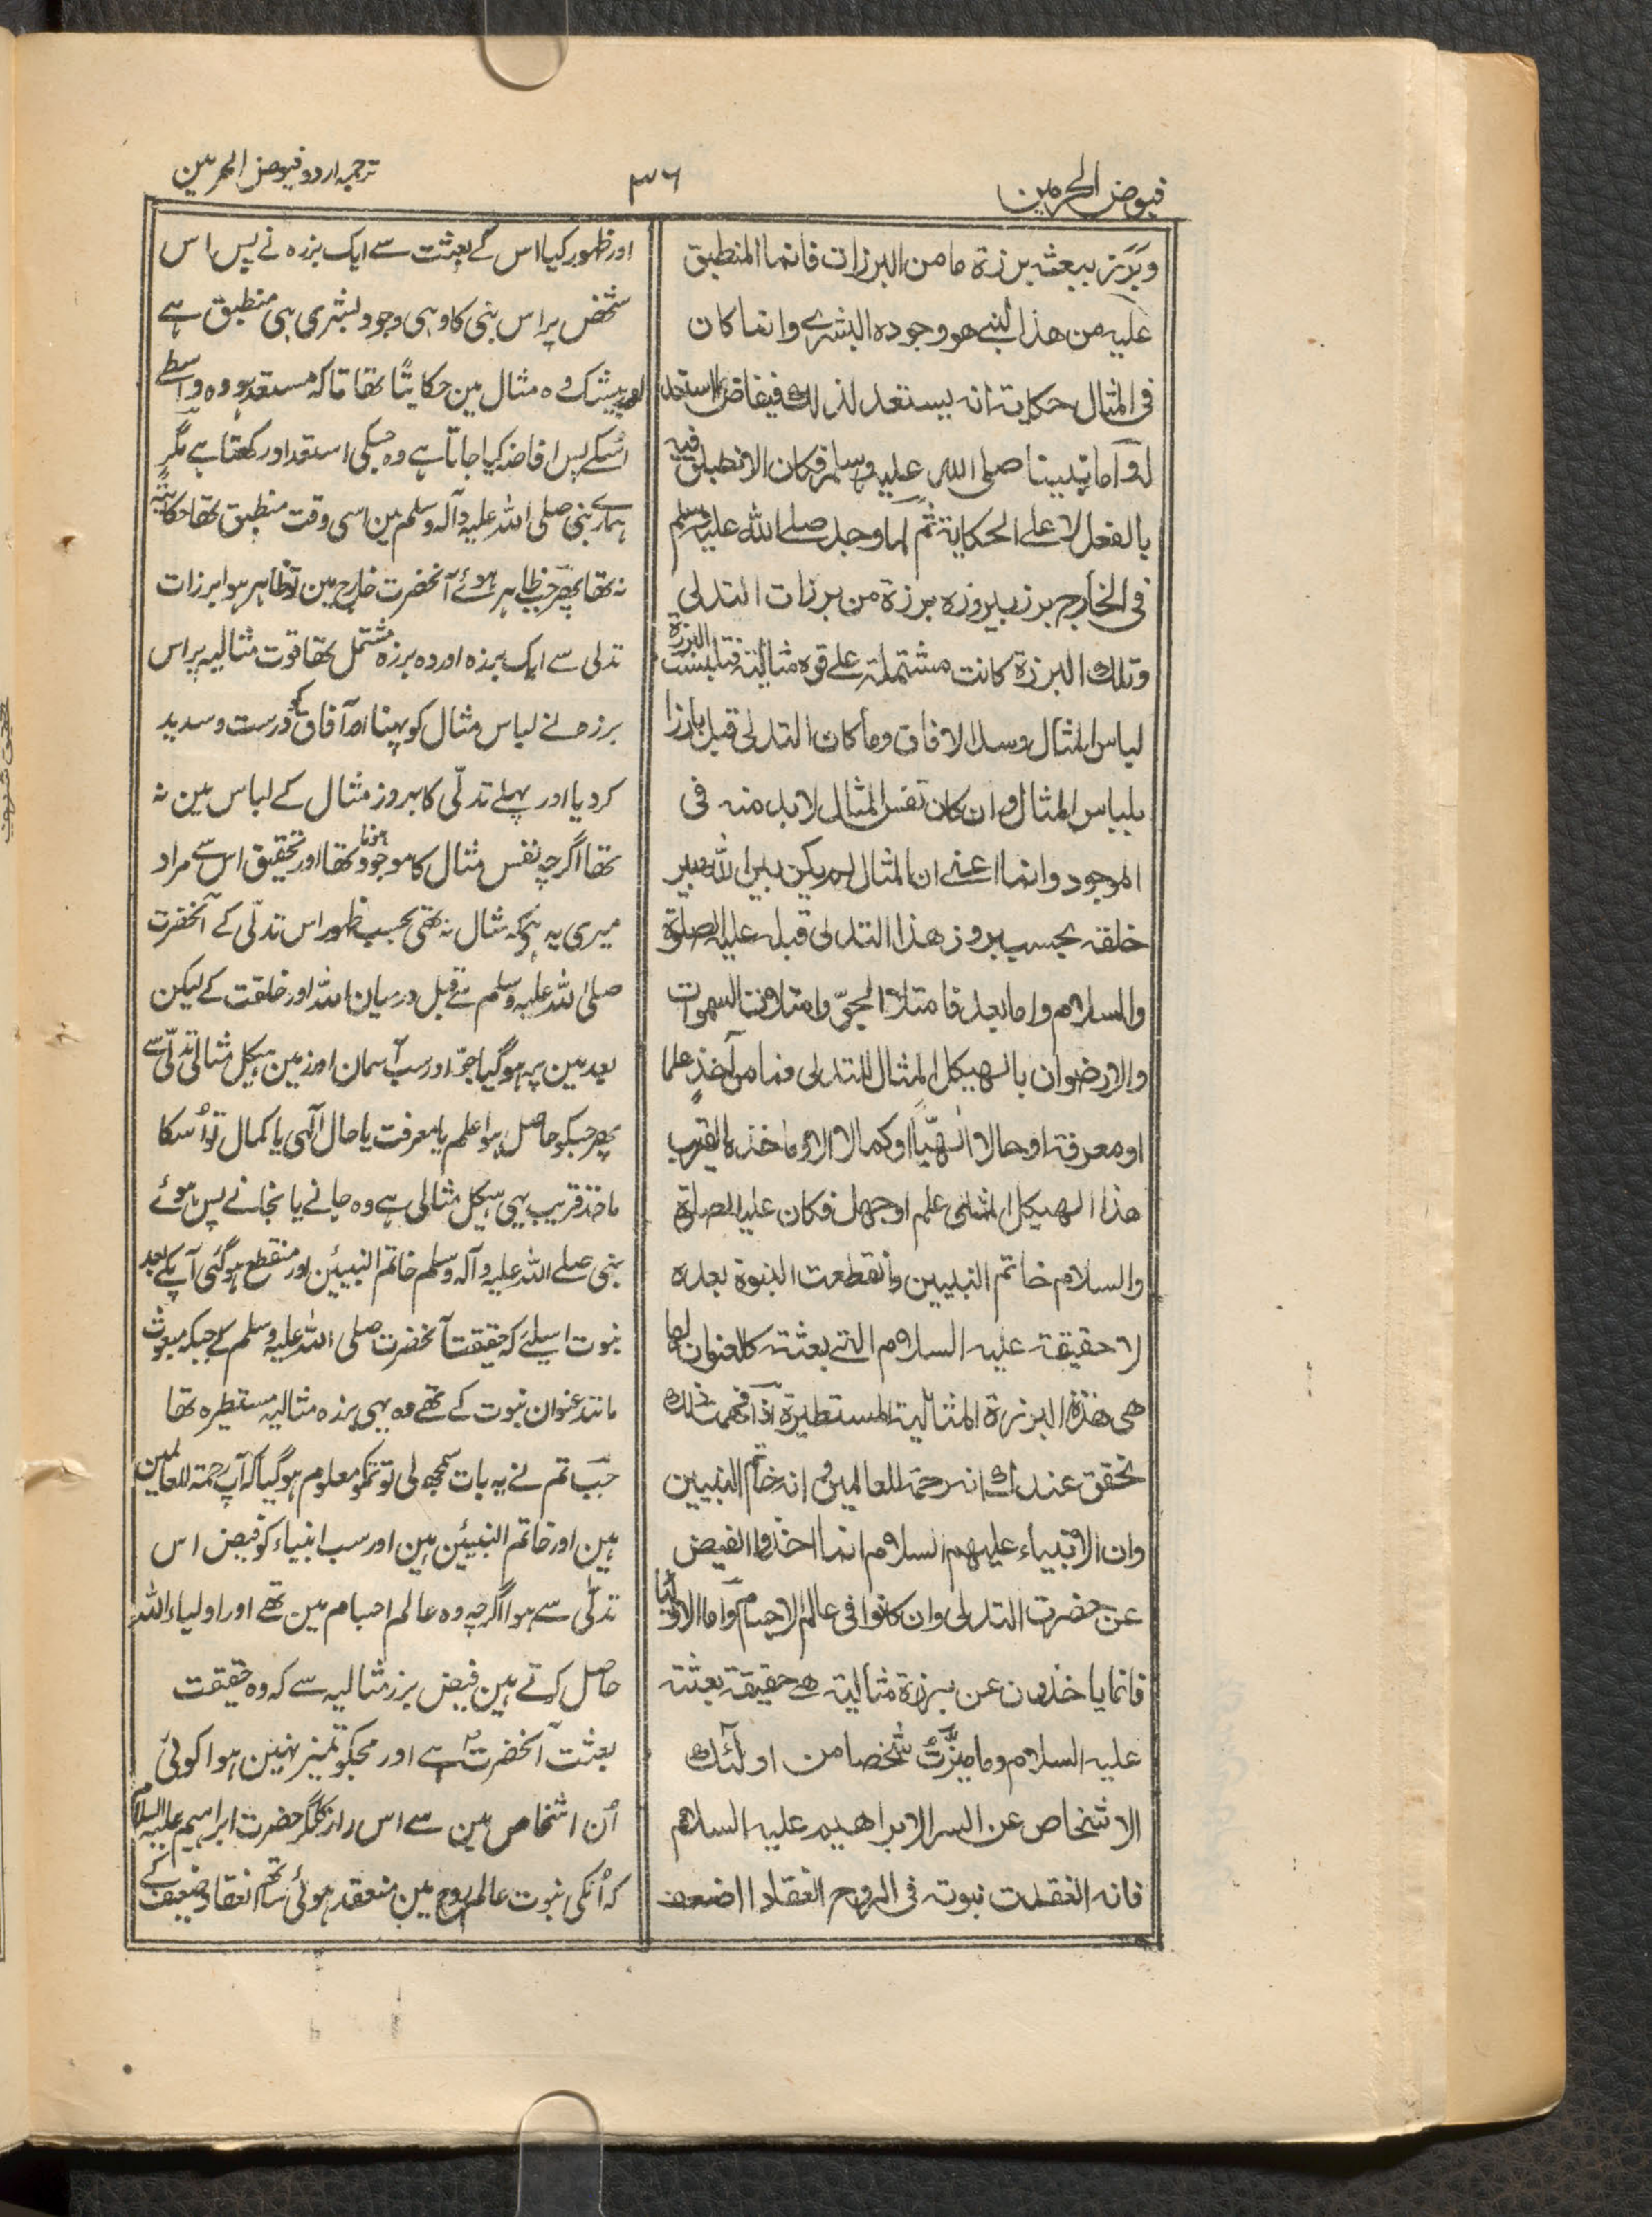 فیوض الحرمین
۳۶
ترجمہ اردو فیوض الحرمین
وبَرَز ببعثہ برزۃ ما من البرزات فانما المنطبق
علیہ من ھذا النبی ھو وجودہ البشری وانما کان
فی المثال حکایتہ انہ یستعد لذلک فیفاض بالاستعداد
لہ واما نبینا صلی اللہ علیہ وسلم فکان الانطباق فیہ
بالفعل لا علی الحکایۃ ثم لما وجد صلی اللہ علیہ وسلم
فی الخارج برز ببروزہ برزۃ من برزات التدلی
وتلک البرزۃ کانت مشتملۃ علی قوۃ مثالیۃ فتلبست البرزۃ
لباس المثال وسد الافاق وما کان التدلی قبل بارزا
بلباس المثال وان کان نفس المثال لابد منہ فی
الموجود وانما اعنی ان المثال لم یکن بین اللہ وبین
خلقہ بحسب بروز ھذا التدلی قبلہ علیہ الصلوۃ
والسلام واما بعد فامتلا الجوّ وامتلات السموات
والارضون بالھیکل المثال للتدلی فما من آخذٍ علما
او معرفۃ او حالا الٰھیّا او کمالا الا وماخذہ القریب
ھذا الھیکل المثالی علم او جھل فکان علیہ الصلوۃ
والسلام خاتم النبیین وانقطعت النبوۃ بعدہ
لا حقیقۃ علیہ السلام التی بعثتہ کالعنوان لھا
ھی ھذہ البرزۃ المثالیۃ المستطیرۃ اذا فھمت ذلک
تحقق عندک انہ رحمۃ للعالمین وانہ خاتم النبیین
وان الانبیاء علیھم السلام انما اخذوا الفیض
عن حضرت التدلی وان کانوا فی عالم الاجسام واما الاولیا
فانما یاخذون عن برزۃ مثالیۃ ھے حقیقۃ بعثتہ
علیہ السلام وما میّزتُ شخصا من اولٰئک
الاشخاص عن السر الا ابراھیم علیہ السلام
فانہ انعقدت نبوتہ فی الروح انعقادا اضعف
اور ظہور کیا اس کے بعثت سے ایک برزہ نے پس اس
شخص پر اس نبی کا وہی وجود بشری ہی منطبق ہے
اور بیشک وہ مثال مین حکایتًا تھا تاکہ مستعد ہو وہ واسطے
اُسکے پس افاضہ کیا جاتا ہے وہ جسکی استعداد رکھتا ہے مگر
ہمارے نبی صلی اللہ علیہ وآلہ وسلم مین اسی وقت منطبق تھا حکایتًہ
نہ تھا پھر جب ظاہر ہوئے آنحضرت خارج مین تو ظاہر ہوا برزات
تدلی سے ایک برزہ اور وہ برزہ مشتمل تھا قوت مثالیہ پر اس
برزہ نے لباس مثال کو پہنا اور آفاق کو درست و سدید
کر دیا اور پہلے تدلّی کا بروز مثال کے لباس مین نہ
تھا اگرچہ نفس مثال کا موجود ہونا تھا اور تحقیق اس سے مراد
میری یہ ہے کہ مثال نہ تھی بحسب ظہور اس تدلّی کے آنحضرت
صلی اللہ علیہ وسلم سے قبل درمیان اللہ اور خلقت کے لیکن
بعد مین پر ہو گیا جوّ اور سب آسمان اور زمین ہیکل مثالی تدلّی سے
پھر جسکو حاصل ہوا علم یا معرفت یا حال الٓہی یا کمال تو اُسکا
ماخذ قریب یہی ہیکل مثالی ہے وہ جانے یا نجانے پس ہوئے
نبی صلے اللہ علیہ وآلہ وسلم خاتم النبیّین اور منقطع ہو گئی آپکے بعد
نبوت اسلیئے کہ حقیقت آنحضرت صلی اللہ علیہ وسلم کے جبکہ مبعوث
مانند عنوان نبوت کے تھے وہ یہی برزہ مثالیہ مستطیرہ تھا
جب تم نے یہ بات سمجھ لی تو تمکو معلوم ہو گیا کہ آپ رحمۃ للعالمین
ہین اور خاتم النبیّین ہین اور سب انبیاء کو فیض اس
تدلّی سے ہوا اگرچہ وہ عالم اجسام مین تھے اور اولیاء اللہ
حاصل کرتے ہین فیض برز مثالیہ سے کہ وہ حقیقت
بعثت آنحضرتؐ ہے اور مجکو تمیز نہین ہوا کوئی
اُن اشخاص مین سے اس راز کا مگر حضرت ابراہیم علیہ السلام
کہ اُنکی نبوت عالم روح مین منعقد ہوئی ساتھ انعقاد ضعیف کے